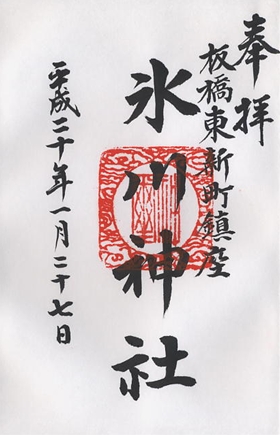 奉拝
板橋東新町鎮座
氷川神社
平成二十年一月二十七日